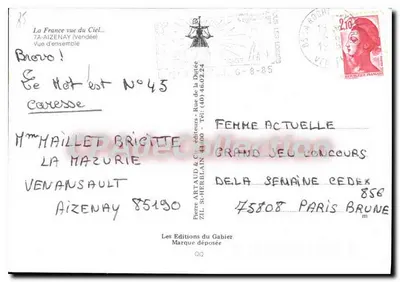 La France vue du Ciel...
7A-AIZENAY (Vendée)
Vue d'ensemble
Bravo !
Le Mot est N° 45
Caresse
Mme MAILLET BRIGITTE
LA MAZURIE
VENANSAULT
AIZENAY 85190
Pierre ARTAUD & Cie, éditeurs - Rue de la Dutée
ZIL St-HERBLAIN 44800 - Tél: (40) 46.02.24
6-8-85
2,10
FEMME ACTUELLE
GRAND JEU CONCOURS
DE LA SEMAINE CEDEX
856
75808 PARIS BRUNE
m
Les Editions du Gabier
Marque déposée